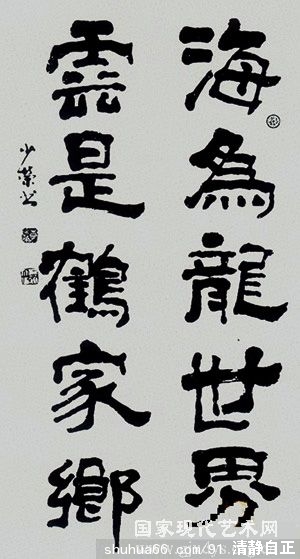 海為龍世界
雲是鶴家鄉
少榮书
国家现代艺术网
shuhua66.com/91.清静自正